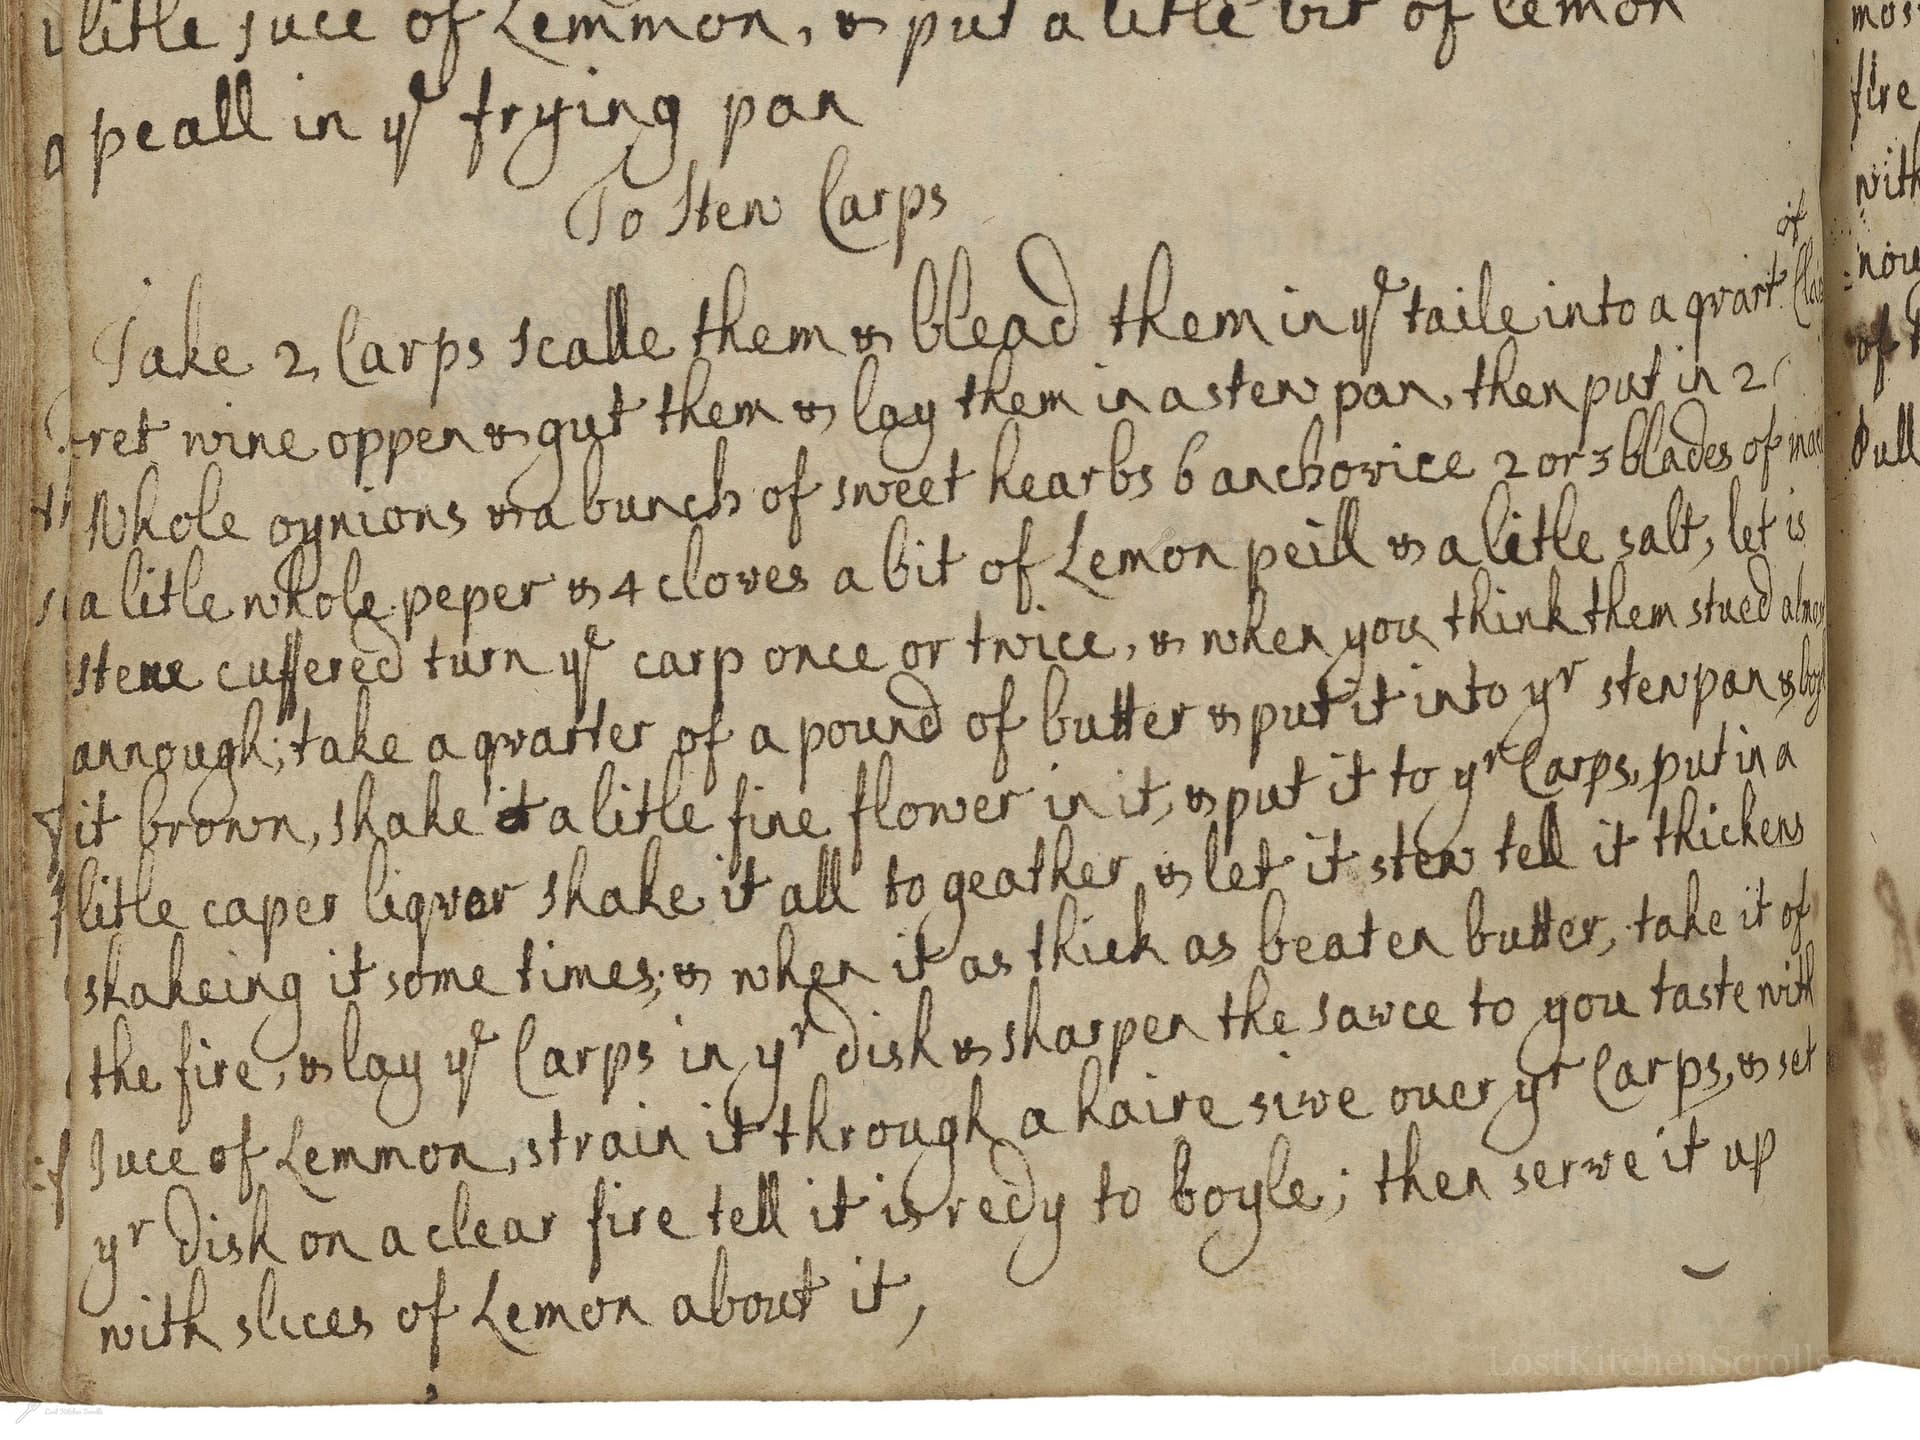 litle juce of Lemmon, & put a litle bit of lemon
peall in yᵉ frying pan
To Stew Carps
of
Take 2 Carps scalle them & blead them in yᵉ taile into a qvart Cla
ret wine oppen & gut them & lay them in a stew pan, then put in 2
Whole oynions & a bunch of sweet hearbs 6 anchovice 2 or 3 blades of mace
a litle whole peper & 4 cloves a bit of Lemon peill & a litle salt, let is
steue cuffered turn yᵉ carp once or twice, & when you think them stued almos
annough; take a qvarter of a pound of butter & put it into yʳ stewpan & boyl
it brown, shake it a litle fine flower in it, & put it to yʳ Carps, put in a
litle caper liqvor shake it all to geather & let it stew tell it thickens
shakeing it some times; & when it as thick as beaten butter, take it of
the fire, & lay yᵉ Carps in yʳ dish & sharpen the sawce to you taste with
Juce of Lemmon, strain it through a haire sive ouer yʳ Carps, & set
yʳ dish on a clear fire tell it is redy to boyle; then serve it up
with slices of Lemon about it,
mos
fire
with
nou
of
dull
LostKitchenScrolls.com
Lost Kitchen Scrolls